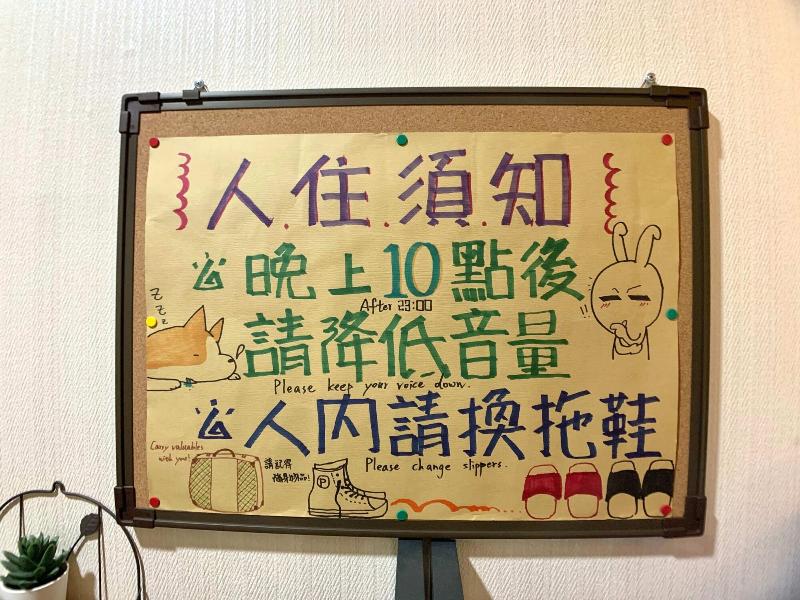 入住須知
晚上10點後
After 23:00
z z z
請降低音量
Please keep your voice down.
入內請換拖鞋
Please change slippers.
Carry valuables
with you!
請記得
P